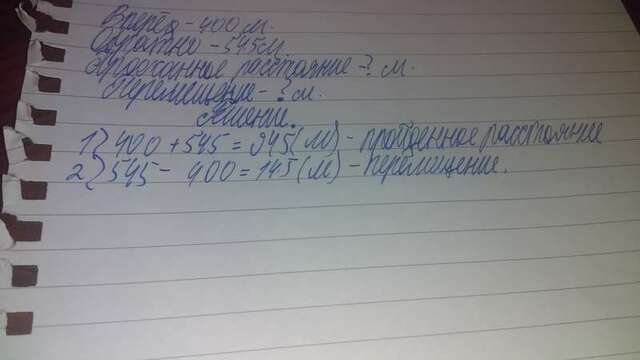 Вперёд - 400 м.
Обратно - 545 м.
Проеханное расстояние - ? м.
Перемещение - ? м.
Решение.
1) 400 + 545 = 945 (м) - пройденное расстояние
2) 545 - 400 = 145 (м) - перемещение.